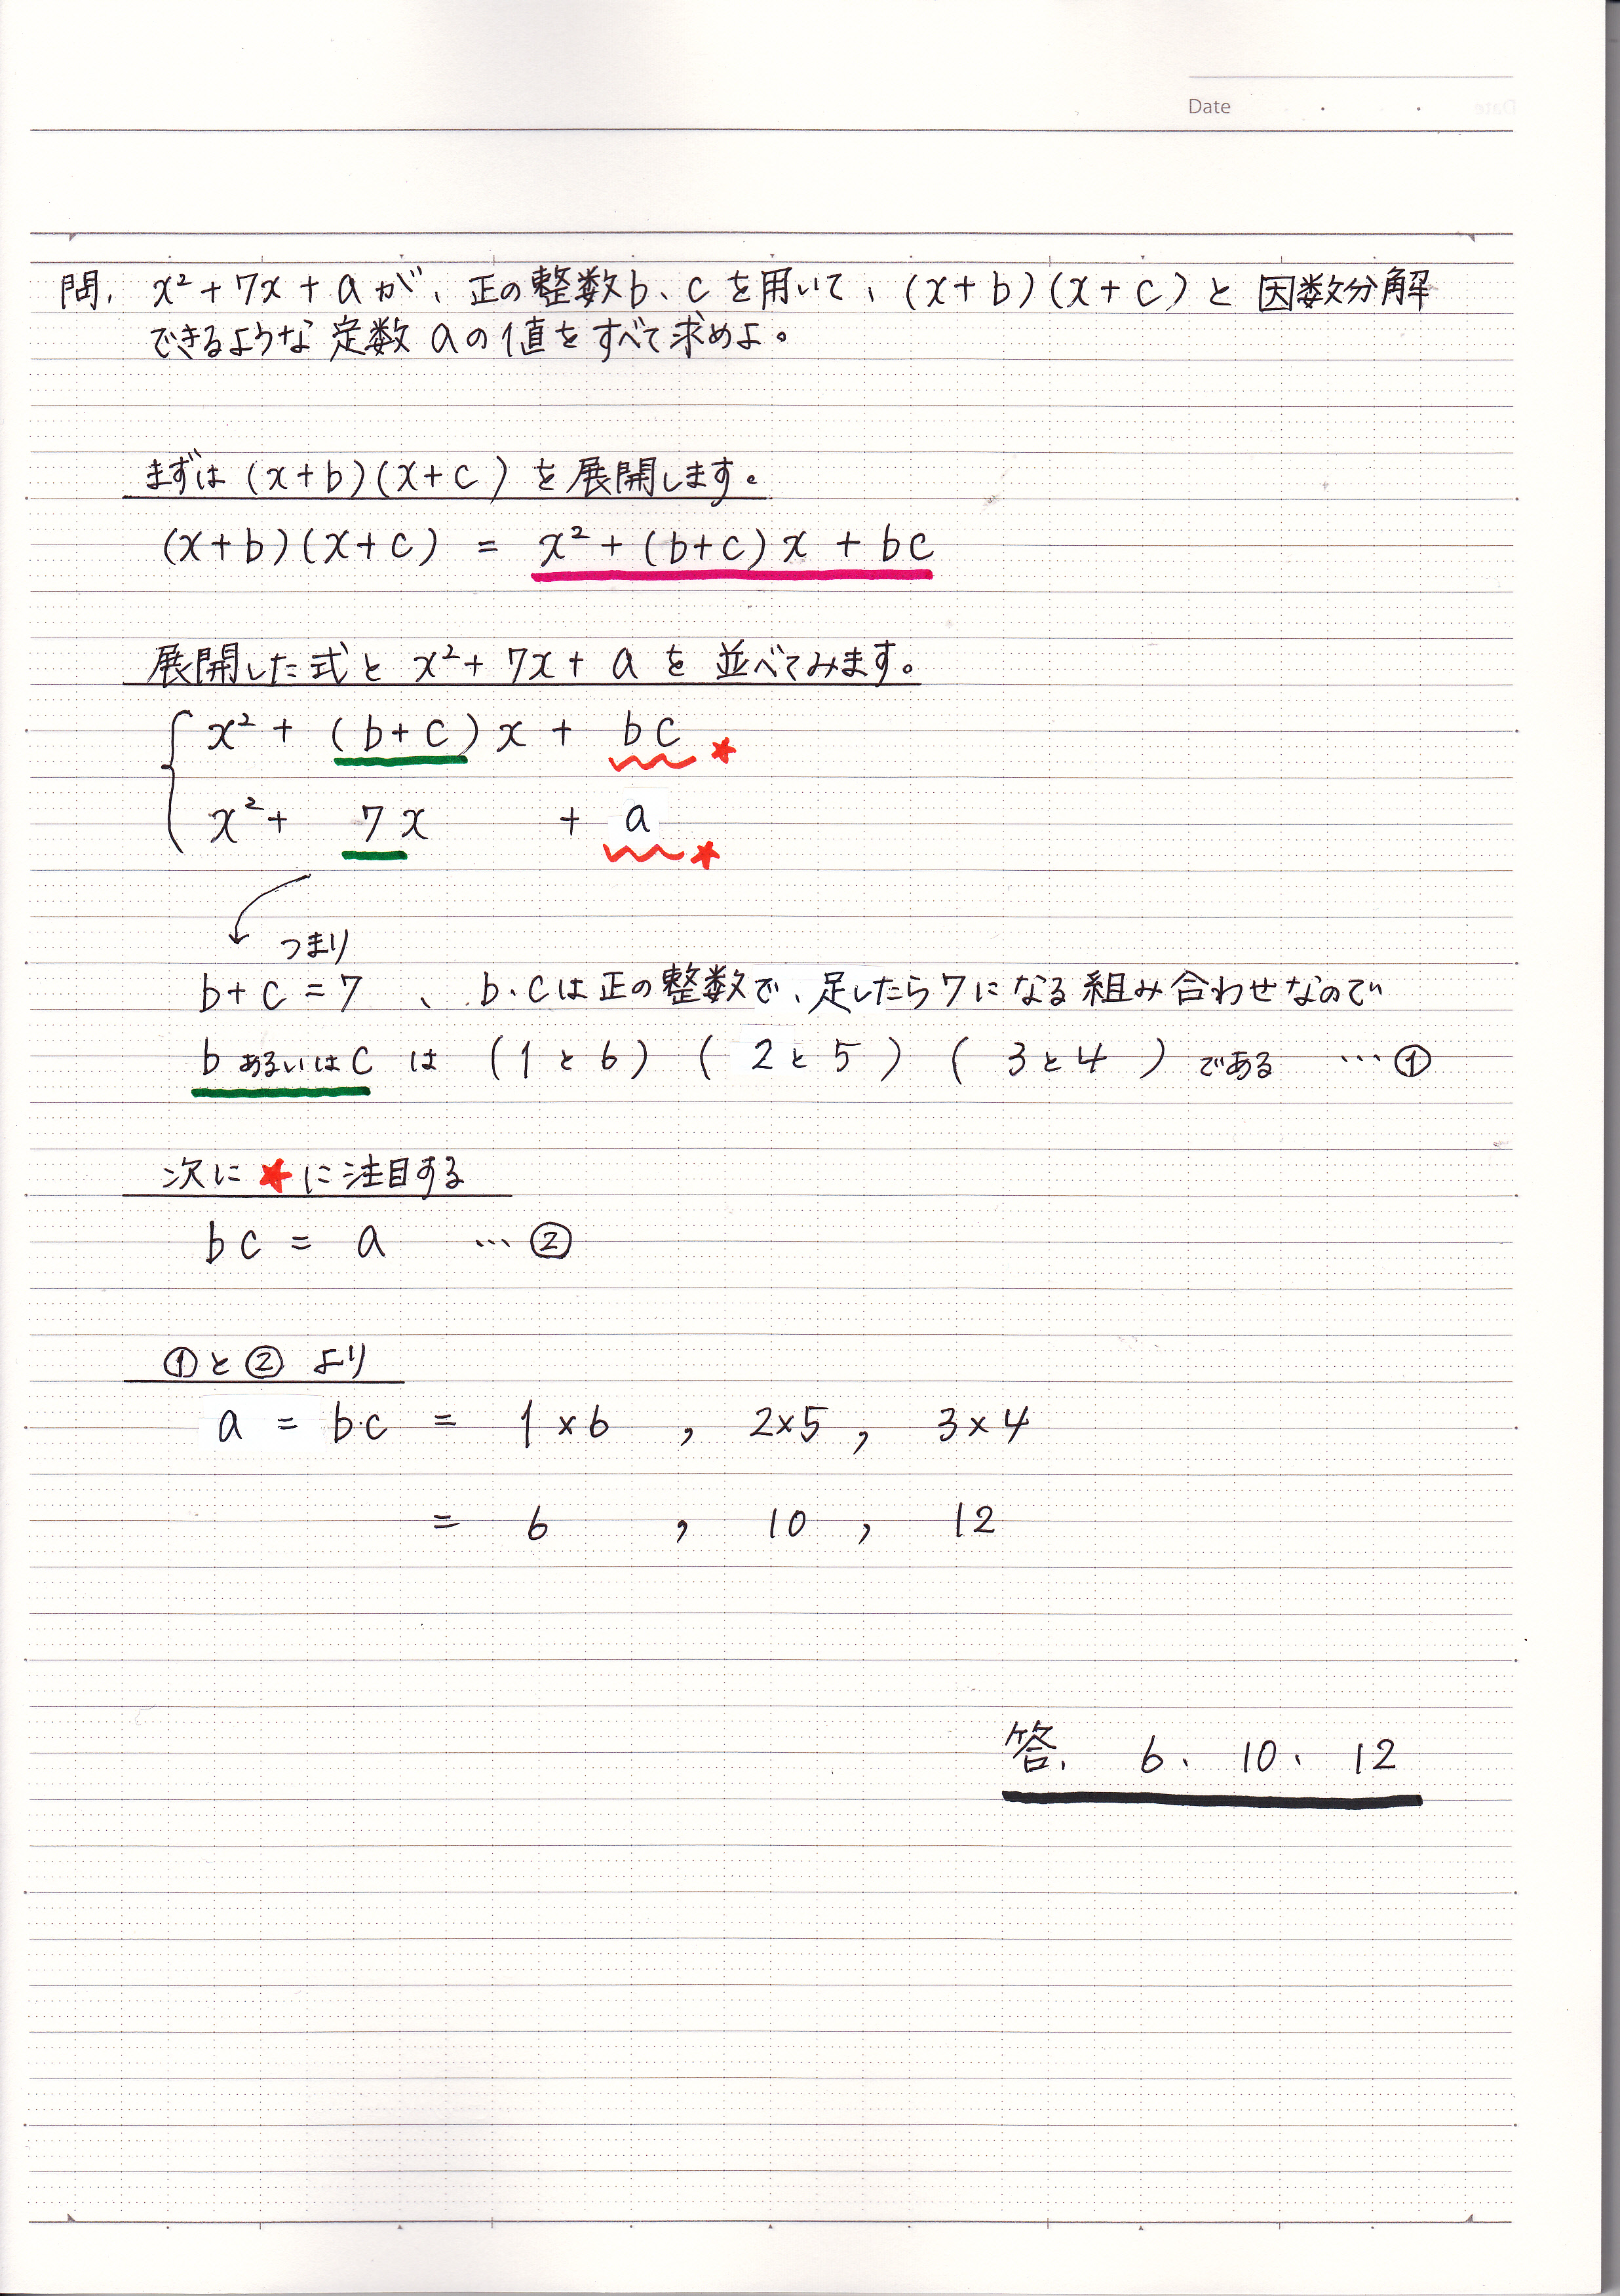 Date
問. x²+7x+aが、正の整数b、cを用いて、(x+b)(x+c)と因数分解
できるような定数aの値をすべて求めよ。
まずは(x+b)(x+c)を展開します。
(x+b)(x+c) = x²+(b+c)x+bc
展開した式とx²+7x+aを並べてみます。
x²+(b+c)x+bc ★
x²+7x+a ★
つまり
b+c=7、b・cは正の整数で、足したら7になる組み合わせなので
bあるいはcは(1と6)(2と5)(3と4)である …①
次に★に注目する
bc=a …②
①と②より
a=b・c=1×6, 2×5, 3×4
=6, 10, 12
答. 6、10、12